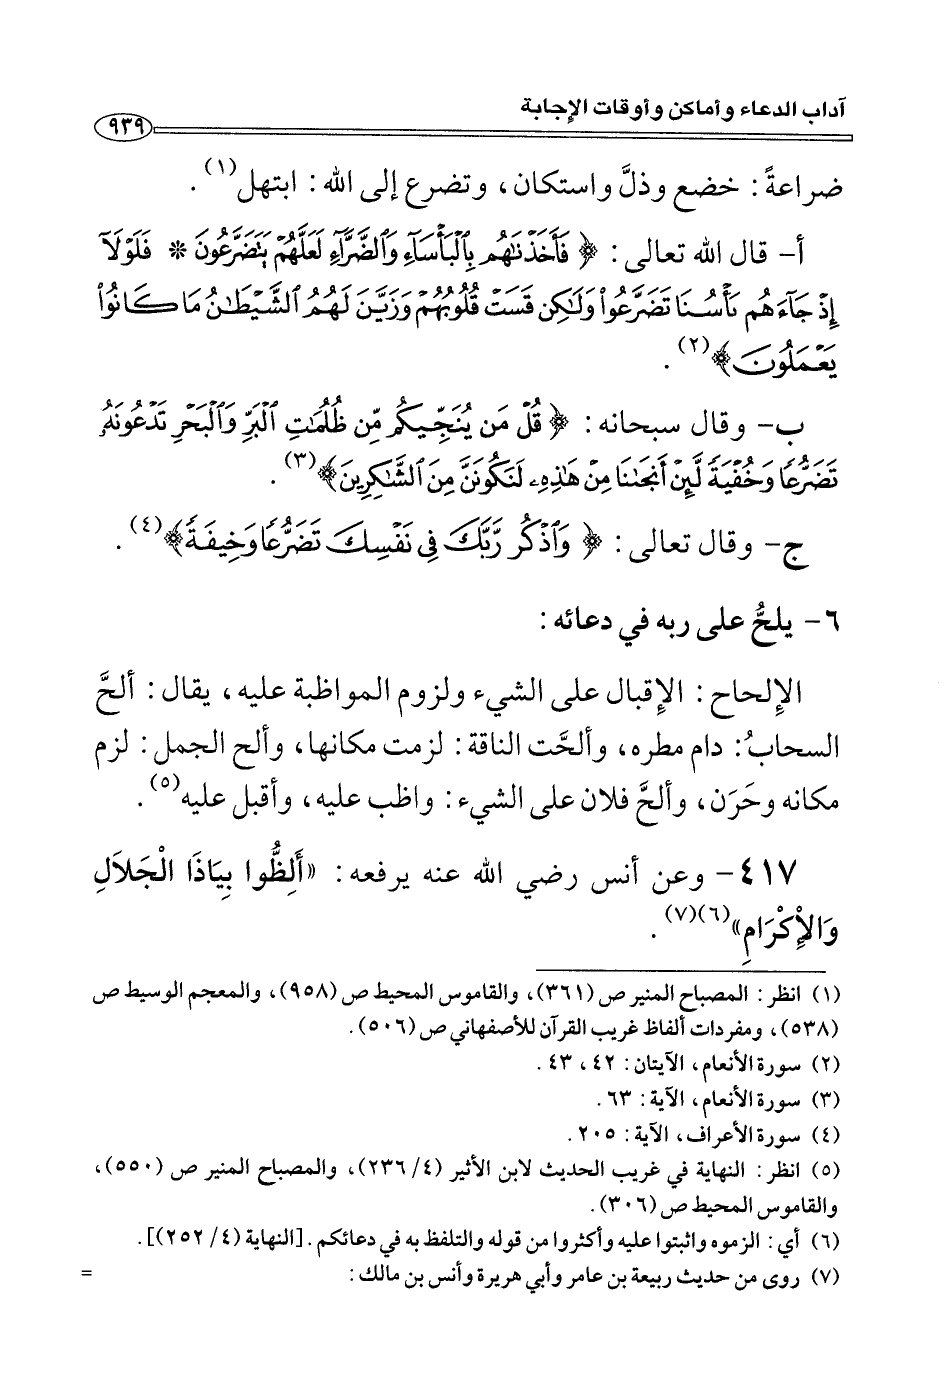 آداب الدعاء وأماكن وأوقات الإجابة
٩٣٩
ضراعةً : خضع وذلَّ واستكان ، وتضرع إلى الله : ابتهل(١) .
أ- قال الله تعالى : ﴿ فَأَخَذْنَٰهُم بِٱلْبَأْسَآءِ وَٱلضَّرَّآءِ لَعَلَّهُمْ يَتَضَرَّعُونَ * فَلَوْلَآ
إِذْ جَآءَهُم بَأْسُنَا تَضَرَّعُوا۟ وَلَٰكِن قَسَتْ قُلُوبُهُمْ وَزَيَّنَ لَهُمُ ٱلشَّيْطَٰنُ مَا كَانُوا۟
يَعْمَلُونَ ﴾(٢) .
ب- وقال سبحانه : ﴿ قُلْ مَن يُنَجِّيكُم مِّن ظُلُمَٰتِ ٱلْبَرِّ وَٱلْبَحْرِ تَدْعُونَهُۥ
تَضَرُّعًا وَخُفْيَةً لَّئِنْ أَنجَىٰنَا مِنْ هَٰذِهِۦ لَنَكُونَنَّ مِنَ ٱلشَّٰكِرِينَ ﴾(٣) .
ج- وقال تعالى : ﴿ وَٱذْكُر رَّبَّكَ فِى نَفْسِكَ تَضَرُّعًا وَخِيفَةً ﴾(٤) .
٦- يلحُّ على ربه في دعائه :
الإلحاح : الإقبال على الشيء ولزوم المواظبة عليه ، يقال : ألحَّ
السحابُ : دام مطره ، وألحَّت الناقة : لزمت مكانها ، وألح الجمل : لزم
مكانه وحَرَن ، وألحَّ فلان على الشيء : واظب عليه ، وأقبل عليه(٥) .
٤١٧- وعن أنس رضي الله عنه يرفعه : «أَلِظُّوا بِيَاذَا الْجَلَالِ
وَالإِكْرَامِ»(٦)(٧) .
(١) انظر : المصباح المنير ص (٣٦١) ، والقاموس المحيط ص (٩٥٨) ، والمعجم الوسيط ص
(٥٣٨) ، ومفردات ألفاظ غريب القرآن للأصفهاني ص (٥٠٦) .
(٢) سورة الأنعام ، الآيتان : ٤٢ ، ٤٣ .
(٣) سورة الأنعام ، الآية : ٦٣ .
(٤) سورة الأعراف ، الآية : ٢٠٥ .
(٥) انظر : النهاية في غريب الحديث لابن الأثير (٤/ ٢٣٦) ، والمصباح المنير ص (٥٥٠) ،
والقاموس المحيط ص (٣٠٦) .
(٦) أي : الزموه واثبتوا عليه وأكثروا من قوله والتلفظ به في دعائكم . [النهاية (٤/ ٢٥٢)] .
(٧) روى من حديث ربيعة بن عامر وأبي هريرة وأنس بن مالك : =